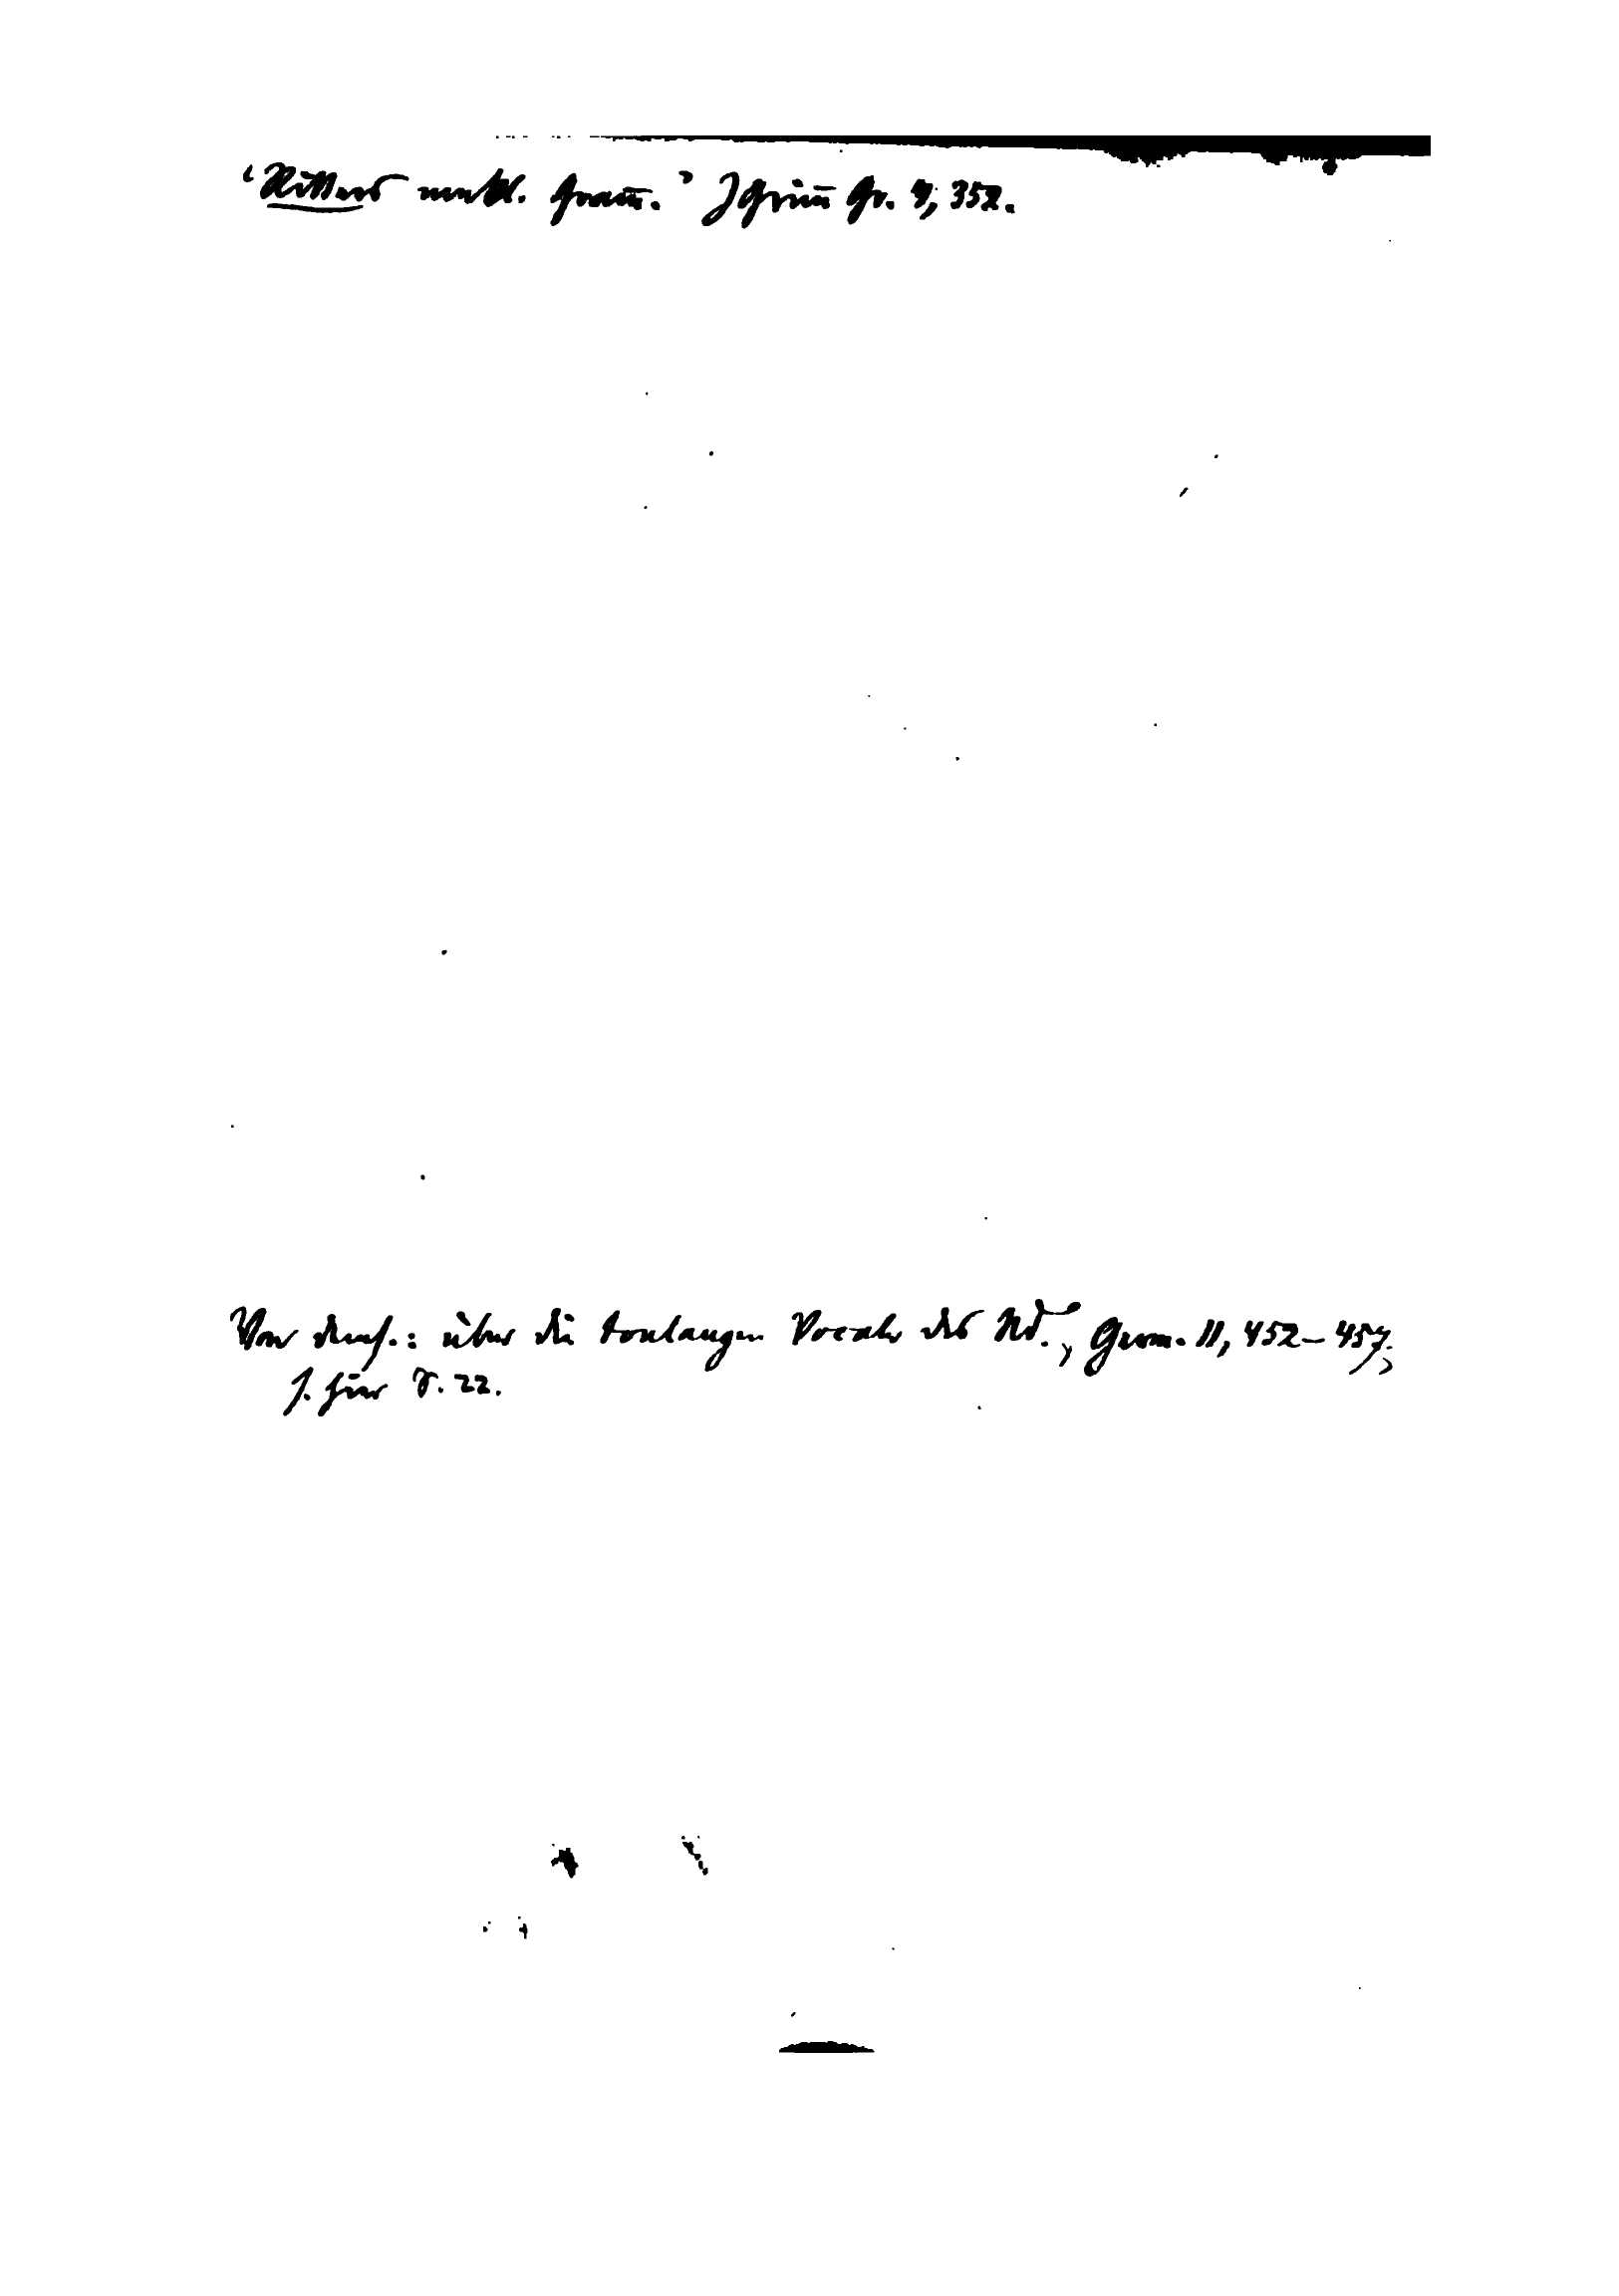 ‘Ritters meckl. Gram̅.’ JGrim̅ Gr. 4, 352.
Von dems.: über die tonlangen Vocale des Nd., Germ. 11, 452–457;
s. hier S. 22.